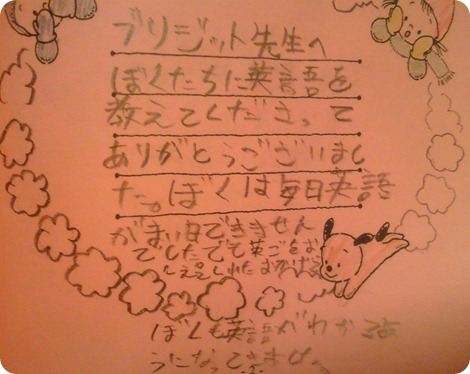 ブリジット先生へ
ぼくたちに英語を
教えてくださって
ありがとうございまし
た。ぼくは毎日英語
がまい日できません
でしたでも英ごをお
しえてくれたおかげ
ぼくも英語がわかるよ
うになって